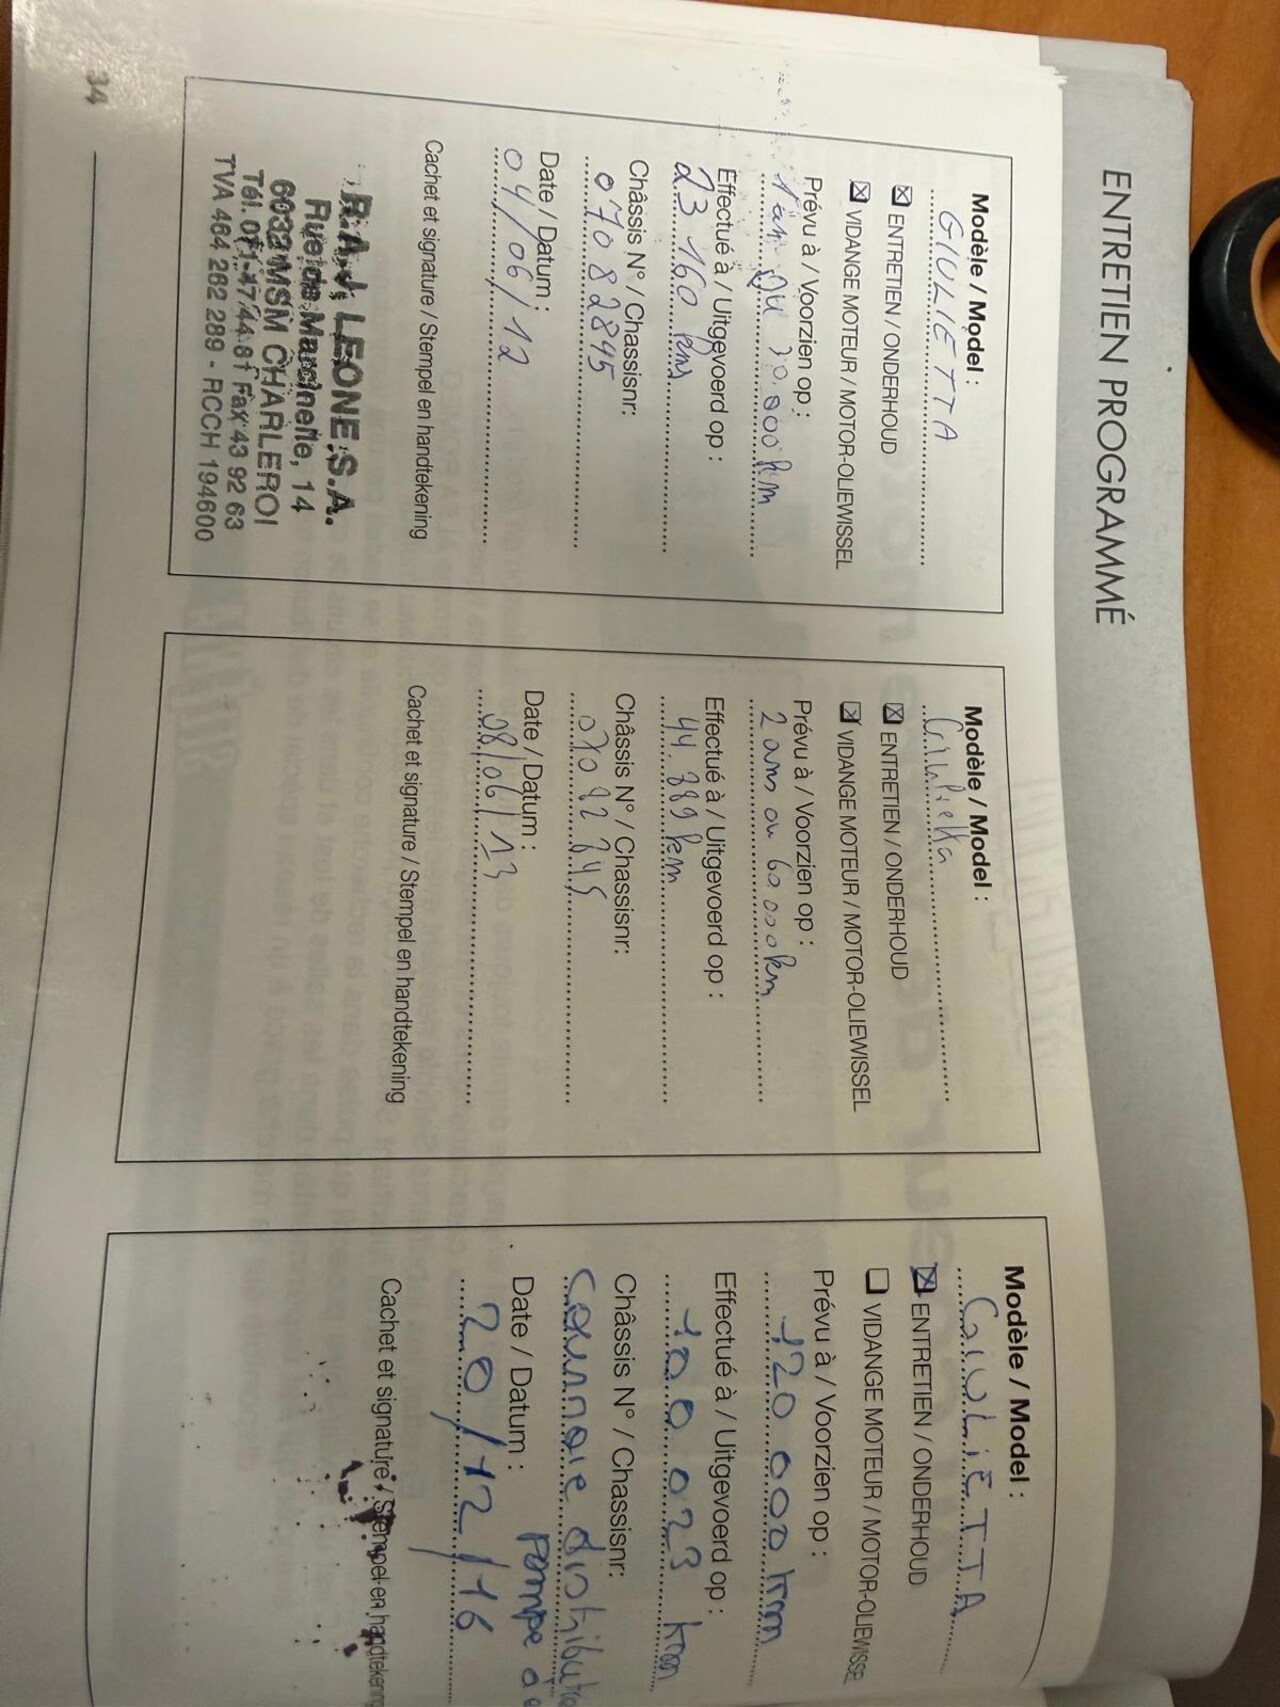 ENTRETIEN PROGRAMMÉ
Modèle / Model :
GIULIETTA
☒ ENTRETIEN / ONDERHOUD
☒ VIDANGE MOTEUR / MOTOR-OLIEWISSEL
Prévu à / Voorzien op :
1 an ou 30.000 km
Effectué à / Uitgevoerd op :
23 160 kms
Châssis N° / Chassisnr:
07082845
Date / Datum :
04/06/12
Cachet et signature / Stempel en handtekening
R.A.V. LEONE S.A.
Rue de Marcinelle, 14
6032 MSM CHARLEROI
Tél. 071-47 44 81 Fax 43 92 63
TVA 464 262 289 - RCCH 194600
Modèle / Model :
Giulietta
☒ ENTRETIEN / ONDERHOUD
☒ VIDANGE MOTEUR / MOTOR-OLIEWISSEL
Prévu à / Voorzien op :
2 ans ou 60.000km
Effectué à / Uitgevoerd op :
44.889 km
Châssis N° / Chassisnr:
07082845
Date / Datum :
08/06/13
Cachet et signature / Stempel en handtekening
Modèle / Model :
GIULIETTA
☒ ENTRETIEN / ONDERHOUD
☐ VIDANGE MOTEUR / MOTOR-OLIEWISSEL
Prévu à / Voorzien op :
120 000 km
Effectué à / Uitgevoerd op :
100 023 km
Châssis N° / Chassisnr:
Courroie distributio
pompe à e
Date / Datum :
20/12/16
Cachet et signature / Stempel en handtekening
34